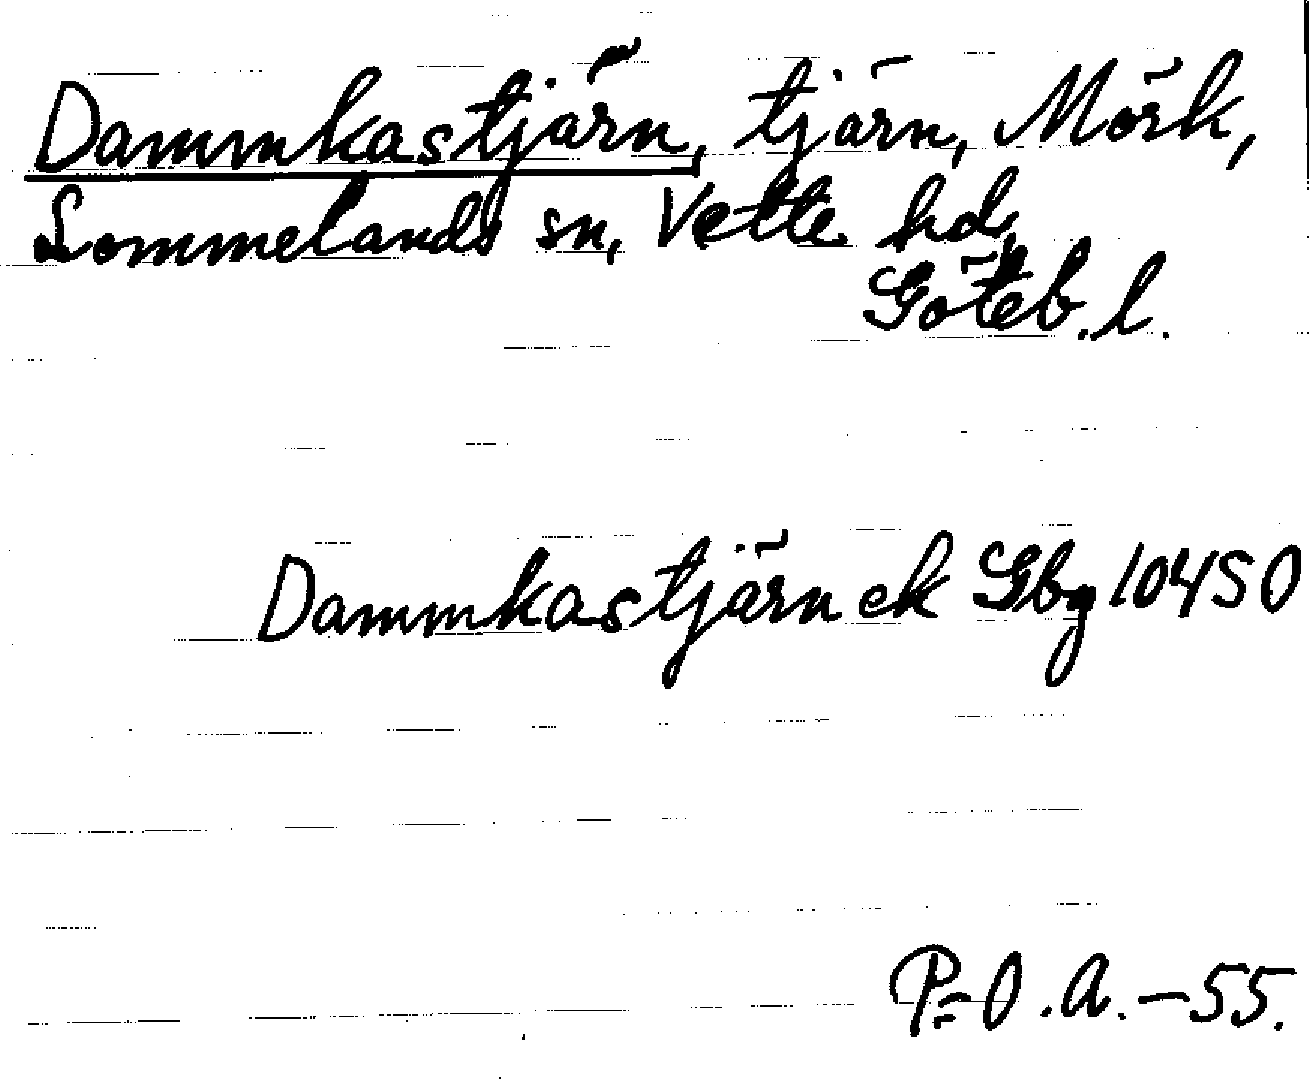 Dammkastjärn, tjärn, Mörk,
Lommelands sn, Vette hd,
Göteb. l.
Dammkastjärn ek Gbg 10450
P-O.A.-55.